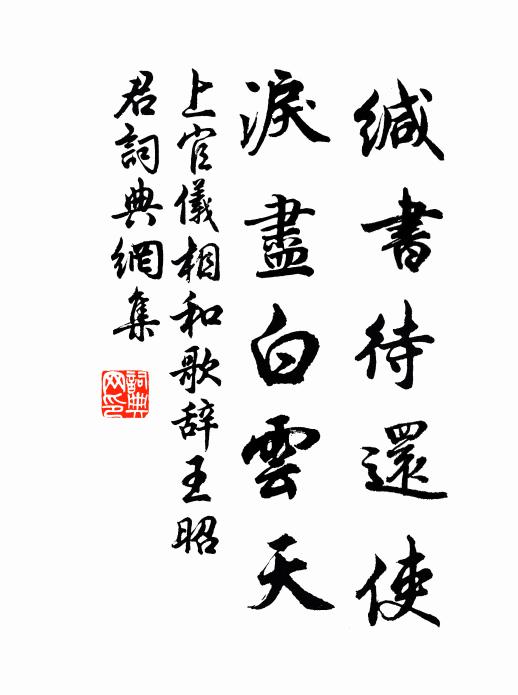 缄書待還使
淚盡白雲天
上官儀相和歌辞王昭
君詞典網集
詞典
网印